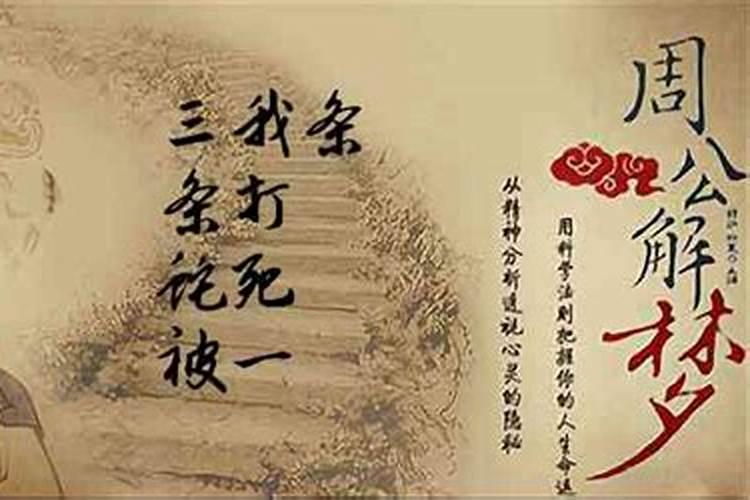 三条蛇被
我打死一
条
周公解梦
用科学法则把握你的人生命运
从精神分析道说心灵的隐秘